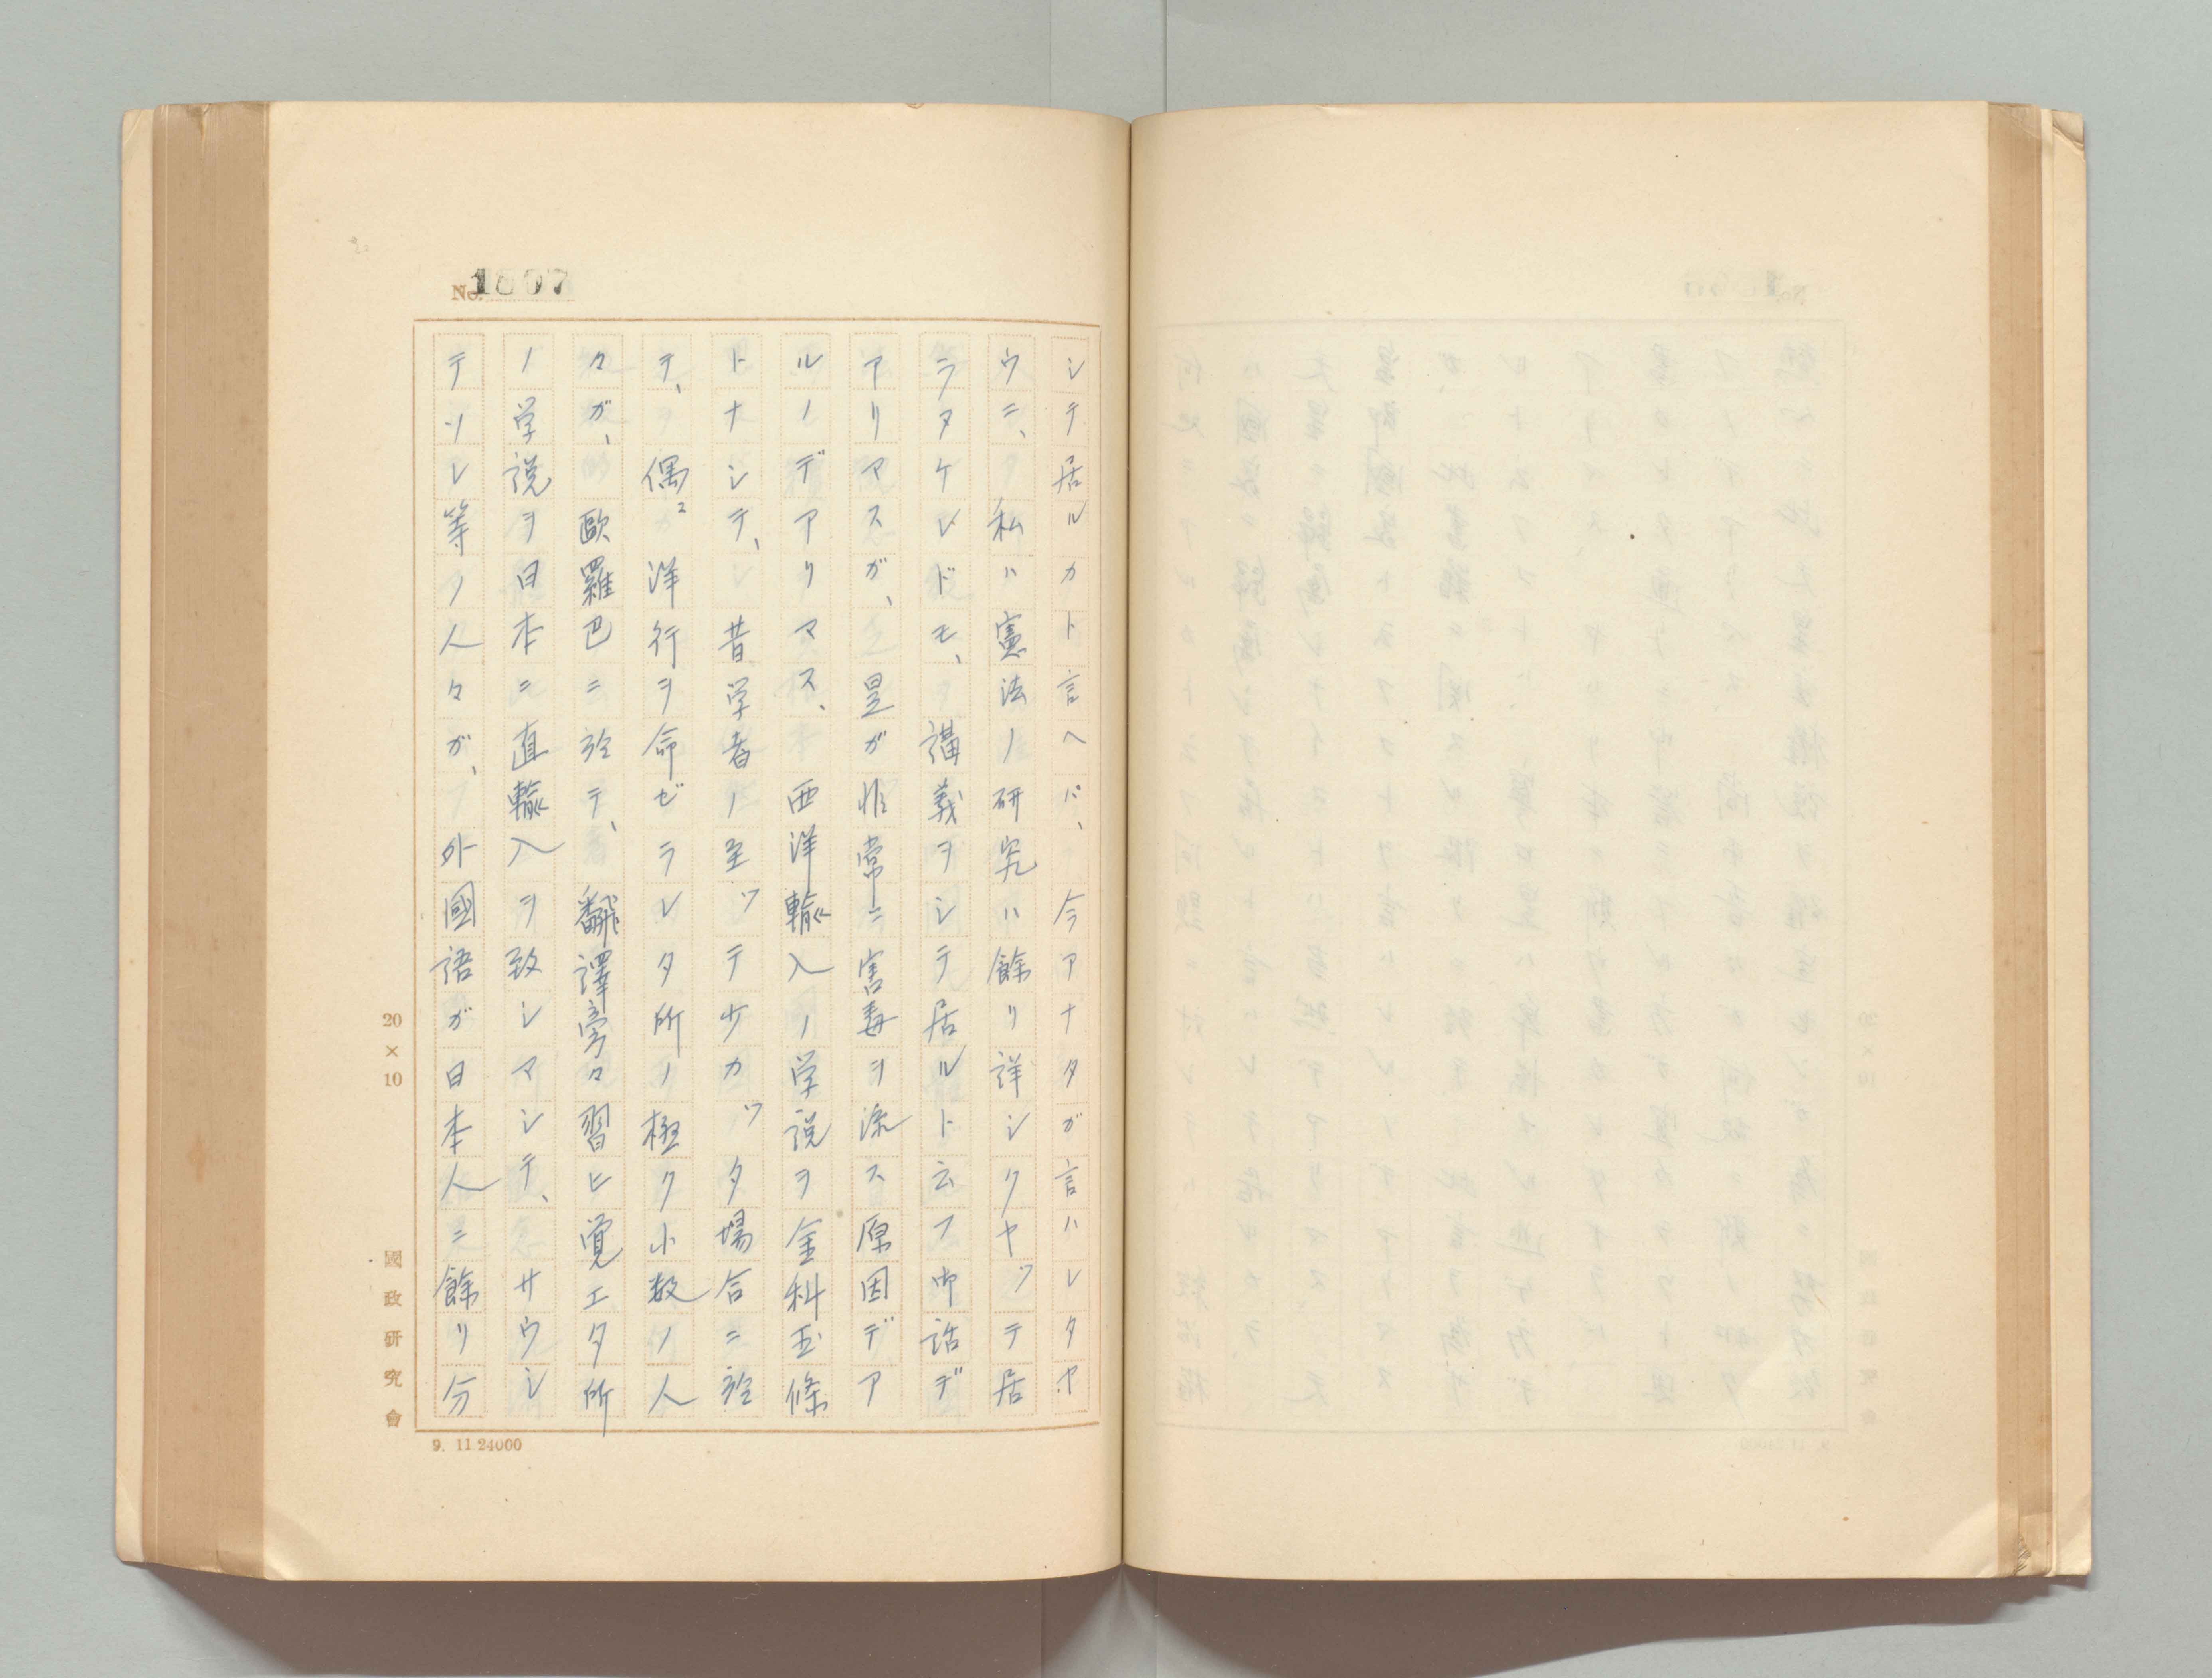 No. 1807
シテ居ルカト言ヘバ、今アナタガ言ハレタヤ
ウニ、私ハ憲法ノ研究ハ餘リ詳シクヤツテ居
ラタケレドモ、講義ヲシテ居ルト云フ御話デ
アリマスガ、是ガ非常ニ害毒ヲ流ス原因デア
ルノデアリマス、西洋輸入ノ学説ヲ金科玉條
トナシテ、昔学者ノ至ツテ少カツタ場合ニ於
テ、偶〻洋行ヲ命ゼラレタ所ノ極ク小数ノ人
々ガ、歐羅巴ニ於テ、翻譯旁々習ヒ覚エタ所
ノ学説ヲ日本ニ直輸入ヲ致シマシテ、サウシ
テソレ等ノ人々ガ、外國語ガ日本人ニ餘リ分
20×10
國政研究會
9. 11 24000